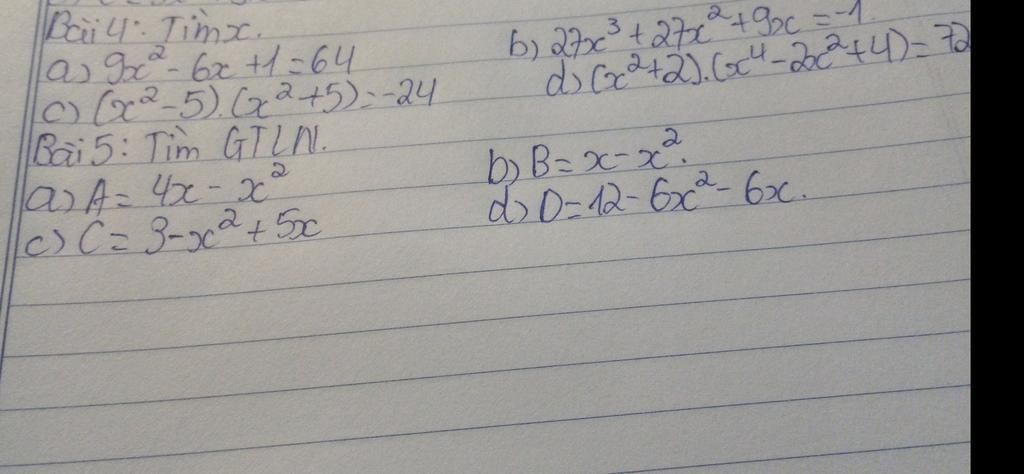 Bài 4: Tìm x.
a) 9x² - 6x + 1 = 64 b) 27x³ + 27x² + 9x = -1
c) (x² - 5).(x² + 5) = -24 d) (x² + 2).(x⁴ - 2x² + 4) = 72
Bài 5: Tìm GTLN.
a) A = 4x - x² b) B = x - x².
c) C = 3 - x² + 5x d) D = 12 - 6x² - 6x.